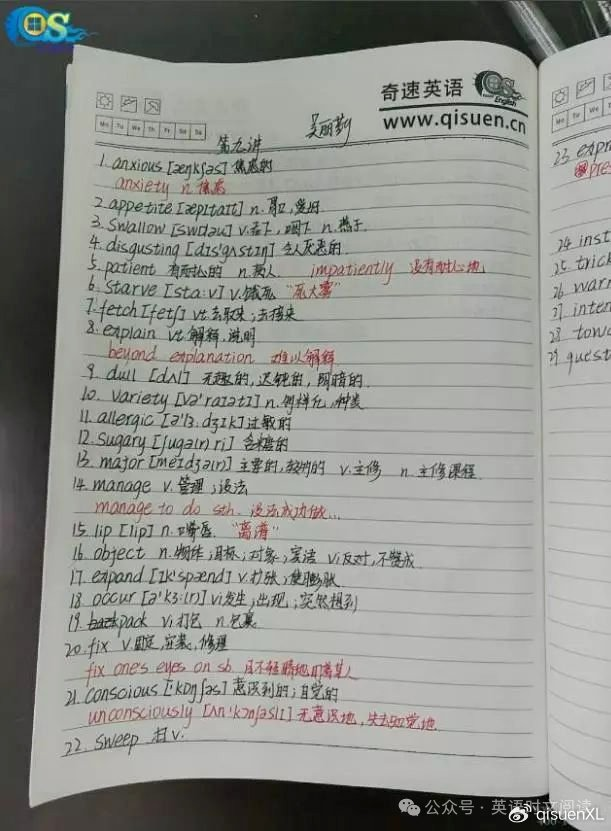 奇速英语
English
www.qisuen.cn
Mo Tu We Th Fr Sa Su
第九讲
吴丽勤
1. anxious [æŋkʃəs] 焦虑的
anxiety n. 焦虑
2. appetite [æpɪtaɪt] n. 胃口,爱好
3. swallow [swɒləu] v.吞下,咽下 n.燕子
4. disgusting [dɪs'gʌstɪŋ] 令人厌恶的
5. patient 有耐心的 n.病人 impatiently 没有耐心地
6. starve [sta:v] v.饿死
7. fetch [fetʃ] vt.去取来;去接来
8. explain vt.解释,说明
beyond explanation 难以解释
9. dull [dʌl] 无趣的,迟钝的,阴暗的
10. variety [və'raɪətɪ] n.多样化,种类
11. allergic [ə'lɜ.dʒɪk] 过敏的
12. sugary [ʃugə(r) ri] 含糖的
13. major [meɪdʒə(r)] 主要的,较大的 v.主修 n.主修课程
14. manage v.管理;设法
manage to do sth. 设法成功做...
15. lip [lɪp] n.嘴唇
16. object n.物体;目标;对象;宾语 vi反对,不赞成
17. expand [ɪk'spænd] v.扩张;使膨胀
18. occur [ə'kɜ:(r)] vi发生;出现;突然想到
19. pack vi打包 n.包裹
20. fix v.固定,安装,修理
fix one's eyes on sb. 目不转睛地盯着某人
21. conscious ['kɒnʃəs] 意识到的;自觉的
unconsciously [ʌn'kɒnʃəslɪ] 无意识地,失去知觉地
22. sweep 扫 v.
23 expr
pres
24. inst
25. trick
26 warn
27 inten
28 towa
29. quest
公众号·英语时文阅读
qisuenXL